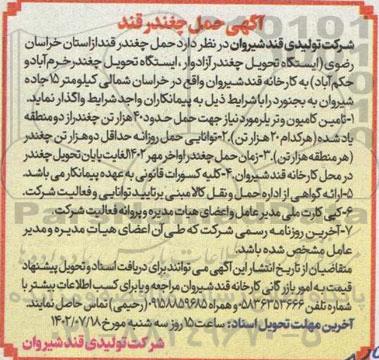 آگهی حمل چغندر قند
شرکت تولیدی قند شیروان در نظر دارد حمل چغندر قند از استان خراسان
رضوی (ایستگاه تحویل چغندر آزادوار ، ایستگاه تحویل چغندر خرم‌آباد و
حکم‌آباد) به کارخانه قند شیروان واقع در خراسان شمالی کیلومتر ۱۵ جاده
شیروان به بجنورد را با شرایط ذیل به پیمانکاران واجد شرایط واگذار نماید.
۱-تامین کامیون و تریلر مورد نیاز جهت حمل حدود ۴۰ هزار تن چغندر از دو منطقه
یاد شده (هر کدام ۲۰ هزار تن). ۲-توانایی حمل روزانه حداقل دو هزار تن چغندر
(هر منطقه هزار تن). ۳-زمان حمل چغندر اواخر مهر ۱۴۰۲ لغایت پایان تحویل چغندر
در محل کارخانه قند شیروان. ۴-کلیه کسورات قانونی به عهده پیمانکار می باشد.
۵-ارائه گواهی از اداره حمل و نقل کالا مبنی بر تایید توانایی و فعالیت شرکت.
۶-کپی کارت ملی مدیر عامل و اعضای هیات مدیره و پروانه فعالیت شرکت.
۷-آخرین روزنامه رسمی شرکت که طی آن اعضای هیات مدیره و مدیر
عامل مشخص شده باشد.
متقاضیان از تاریخ انتشار این آگهی می توانند برای دریافت اسناد و تحویل پیشنهاد
قیمت به امور بازرگانی کارخانه قند شیروان مراجعه و یا برای کسب اطلاعات بیشتر با
شماره تلفن ۰۵۸۳۶۳۵۳۶۶۶ و همراه ۰۹۱۵۸۸۵۹۶۸۵ (رحیمی) تماس حاصل نمایند.
آخرین مهلت تحویل اسناد: ساعت ۱۵ روز سه شنبه مورخ ۱۴۰۲/۰۷/۱۸
شرکت تولیدی قند شیروان